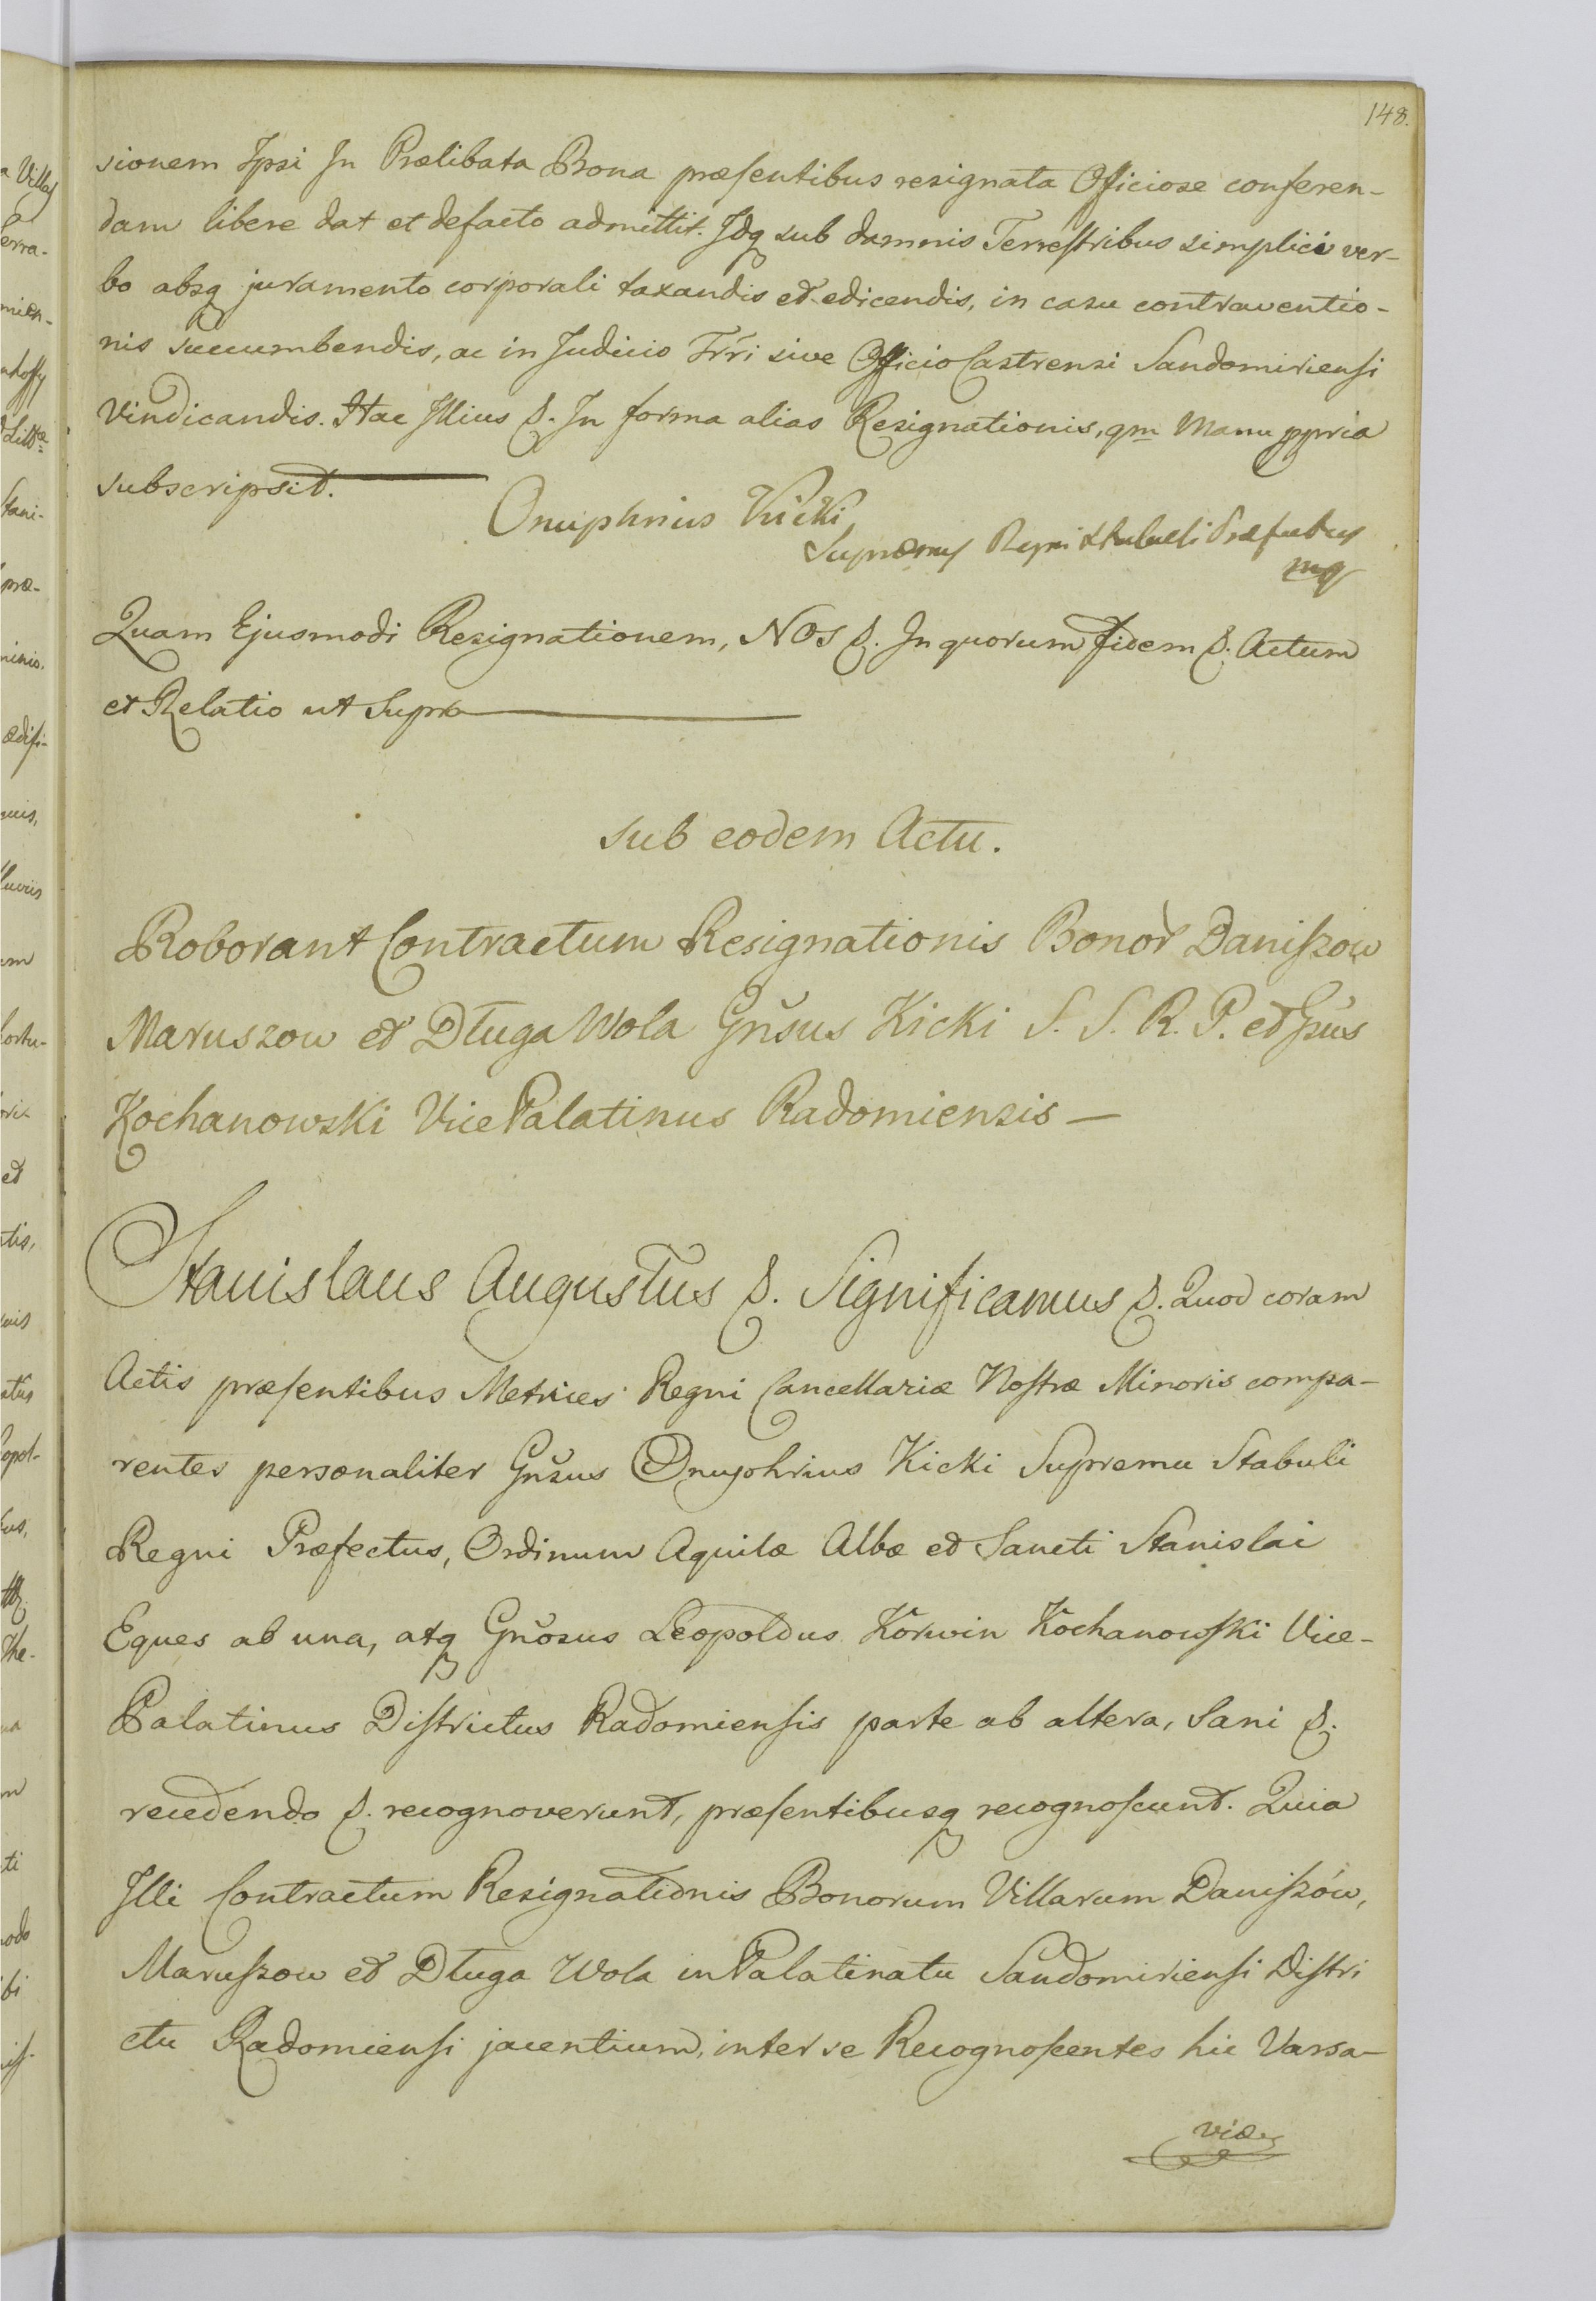 148.
sionem Ipsi In Prælibata Bona præsentibus resignata Officiose conferen-
dam libere dat et defacto admittit. Idq sub damnis Terrestribus simplici ver-
bo absq juramento corporali taxandis et edicendis, in casu contraventio-
nis succumbendis, ac in Judicio Trri sive Officio Castrensi Sandomiriensi
Vindicandis. Hac Illius &. In forma alias Resignationis, qm Manu ppria
subscripsit.
Onuphrius Kicki
Supræmus Regni Stabuli Præfectus
mp
Quam Ejusmodi Resignationem, NOS &. In quorum fidem &. Actum
et Relatio ut Supra
Sub eodem Actu.
Roborant Contractum Resignationis Bonor Daniszow
Maruszow et Długa Wola Gnsus Kicki S. S. R. P. et Gsus
Kochanowski Vice Palatinus Radomiensis —
Stanislaus Augustus &. Significamus &. Quod coram
Actis præsentibus Metrices Regni Cancellariæ Nostræ Minoris compa-
rentes personaliter Gnsus Onuphrius Kicki Supremu Stabuli
Regni Præfectus, Ordinum Aquilæ Albæ et Sancti Stanislai
Eques ab una, atq Gnosus Leopoldus Korwin Kochanowski Vice-
Palatinus Districtus Radomiensis parte ab altera, Sani &.
recedendo &. recognoverunt, præsentibusq recognoscunt. Quia
Illi Contractum Resignationis Bonorum Villarum Daniszów,
Maruszow et Długa Wola in Palatinatu Sandomiriensi Distri
ctu Radomiensi jacentium, inter se Recognoscentes hic Varsa-
viæ